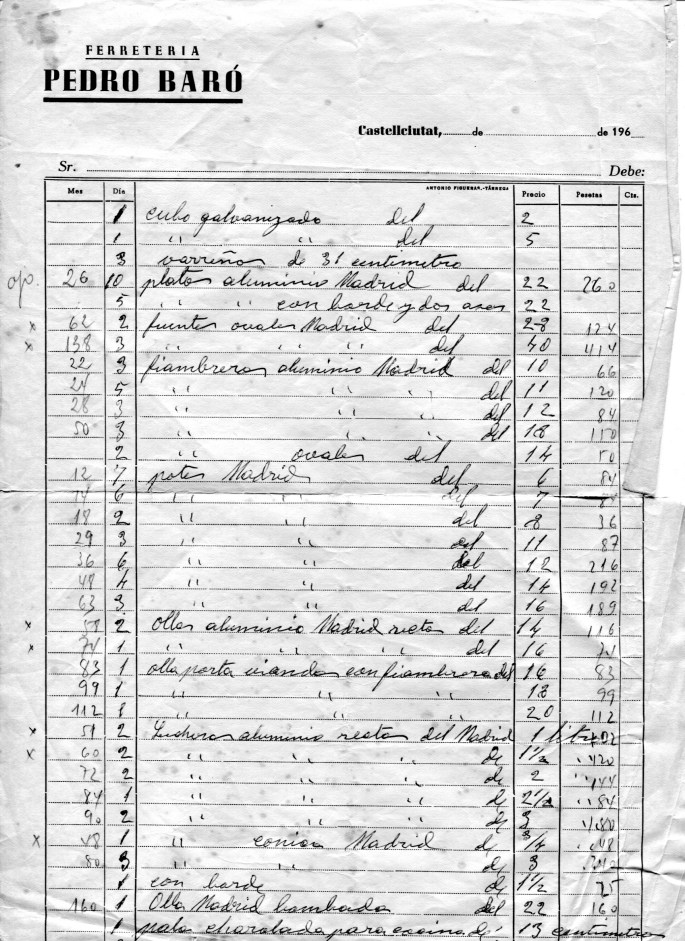 FERRETERIA
PEDRO BARÓ
Castellciutat, de de 196
Sr. Debe:
ANTONIO FIGUERAS.-TÁRREGA
Mes Día Precio Pesetas Cts.
1 cubo galvanizado del 2
1 " " del 5
3 barreños de 31 centimetro
ojo. 26 10 platos aluminio Madrid del 22 260
5 " " con borde y dos asas 22
x 62 2 fuentes ovales Madrid del 28 124
x 138 3 " " del 40 414
22 3 fiambreras aluminio Madrid del 10 66
24 5 " " " del 11 120
28 3 " " " del 12 84
50 3 " " " del 18 150
2 " ovales del 14
12 7 potes Madrid del 6 84
14 6 " " del 7 84
18 2 " " del 8 36
29 3 " " del 11 87
36 6 " " del 12 216
48 4 " " del 14 192
63 3 " " del 16 189
x 58 2 Ollas aluminio Madrid rectas del 14 116
x 74 1 " " " " del 16 74
83 1 olla porta viandas con fiambrera del 16 83
99 1 " " " 18 99
112 1 " " " 20 112
x 51 2 Lecheras aluminio rectas del Madrid 1 litro 102
x 60 2 " " " de 1 1/2 " 120
72 2 " " " de 2 " 144
84 1 " " " de 2 1/2 " 84
90 2 " " " de 3 " 180
x 48 1 " conica Madrid de 3/4 " 48
80 3 " " " de 3 " 240
1 con borde de 1 1/2 75
160 1 Olla Madrid bombada del 22 160
1 pala charolada para cocina de 13 centimetros